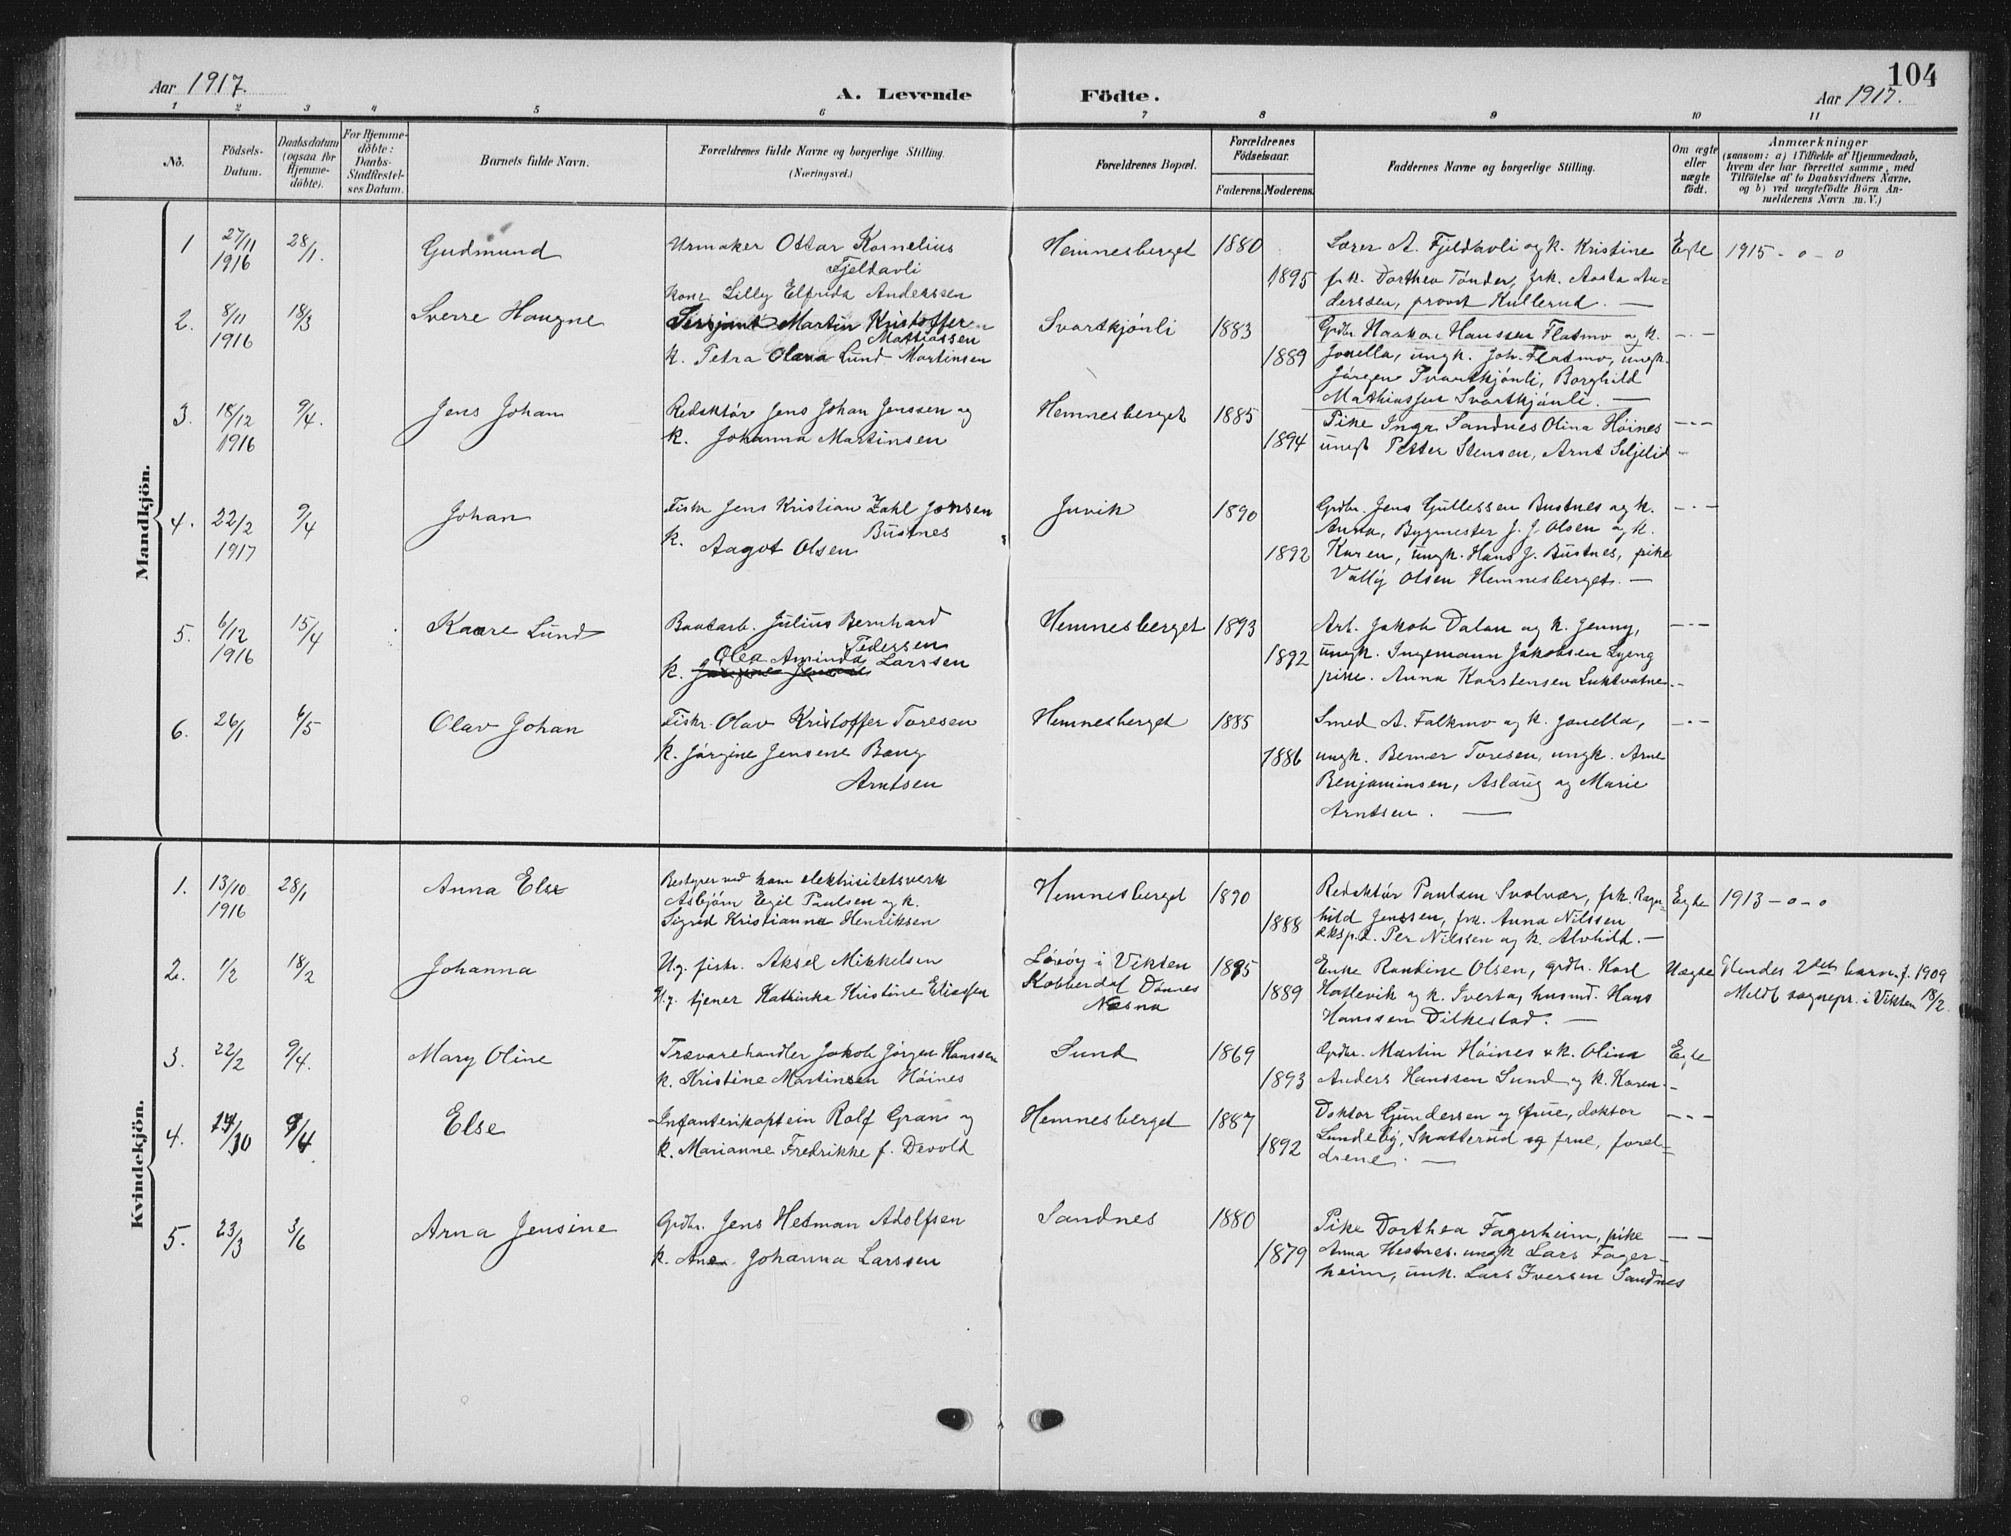 104
Aar 1917.
A. Levende
Födte.
Aar 1917.
1 2 3 4 5 6 7 8 9 10 11
No.
Födsels-
Datum.
Daabsdatum
(ogsaa for
Hjemme-
döbte).
For Hjemme-
döbte:
Daabs-
Stadfæstel-
ses Datum.
Barnets fulde Navn.
Forældrenes fulde Navne og borgerlige Stilling.
(Næringsvei.)
Forældrenes Bopæl.
Forældrenes
Födselsaar.
Faderens. Moderens.
Faddernes Navne og borgerlige Stilling.
Om ægte
eller
uægte
födt.
Anmærkninger
(saasom: a) i Tilfælde af Hjemmedaab,
hvem der har forrettet samme, med
Tilföielse af to Daabsvidners Navne,
og b) ved uægtefödte Börn An-
melderens Navn m. V.)
Mandkjön.
1 27/11 1916 28/1. Gudmund
Urmaker Ottar Kornelius
Fjeldavli
Kone Lilly Elfrida Anderssen
Hemnesberget 1880 1895
Lærer A. Fjeldavli og k. Kristine
frk. Dorthea Tönder, frk. Aasta An-
derssen, provst Kullerud. —
Egte 1915 - o - o
2. 8/11 1916 18/3 Sverre Haugne
Sersjant Martin Kristoffer
Mathiassen
k. Petra Olava Lund Martinsen
Svartkjönli 1883 1889
Grdbr. Haakon Hanssen Flatmo og k.
Jonella, ungk. Joh. Flatmo, ungk.
Jörgen Svartkjönli, Borghild
Mathiassen Svartkjönli. —
- - -
3. 18/12 1916 9/4. Jens Johan
Redaktör Jens Johan Jenssen og
k. Johanna Martinsen
Hemnesberget 1885 1894
Pike Inga Sandnes Olina Höines
ungk Petter Stensen, Arnt Seljelid
- - -
4. 22/2 1917 9/4 Johan
Fiskr Jens Kristian Zahl Jonsen
Bustnes
k. Aagot Olsen
Juvik 1890 1892
Grdbr. Jens Gullessen Bustnes og k.
Anna, Bygmester J. J. Olsen og k.
Karen, ungk. Hans J. Bustnes, pike
Vally Olsen Hemnesberget. —
- - -
5. 6/12 1916 15/4 Kaare Lund
Baatarb. Julius Bernhard
Pedersen
Olea Aminda
k. Larssen
Hemnesberget 1893 1892
Arb. Jakob Dalan og k. Jenny,
ungk. Ingemann Jakobsen Lyeng
pike. Anna Karstensen Luktvatne.
- - -
6. 26/1 6/5 Olav Johan
Fiskr. Olav Kristoffer Toresen
k. Jörgine Jensene Bang
Arntsen
Hemnesberget 1885 1886
Smed A. Falkmo og k. Jonella,
ungk. Berner Toresen, ungk. Arne
Benjaminsen, Aslaug og Marie
Arntsen. —
- - -
Kvindekjön.
1. 13/10 1916 28/1 Anna Else
Bestyrer ved kom elektrisitetsverk
Asbjörn Egil Paulsen og k.
Sigrid Kristianna Henriksen
Hemnesberget 1890 1888
Redaktör Paulsen Svolvær, frk. Ragn-
hild Jenssen, frk. Anna Nilssen
eksp.d. Per Nilssen og k. Alvhild. —
Egte 1913 - o - o
2. 1/2 18/2 Johanna
Ug. fiskr. Aksel Mikkelsen
Ug. tjener Kathinka Kristine Eliassen
Lövöy i Vikten
Kobberdal Dönnes
Nesna
1895 1889
Enke Randine Olsen, grdbr. Karl
Hatlevik og k. Iverta, husmd. Hans
Hanssen Dilkestad. —
Uægte Hendes 2det barn f. 1909
Meldt sognepr. i Vikten 18/2.
3. 22/2 9/4. Mary Oline
Trævarehandler Jakob Jörgen Hanssen
k. Kristine Martinsen Höines
Sund 1869 1893
Grdbr. Martin Höines & k. Olina
Anders Hanssen Sund og k. Karen. -
Egte
4. 9/4 Else
Infanterikaptein Rolf Gran og
k. Marianne Fredrikke f. Devold
Hemnesberget 1887 1892
Doktor Gundersen og frue, doktor
Lundeby, Skatterud og frue, forel-
drene. —
- - -
5. 23/3 3/6 Arna Jensine
Grdbr. Jens Hetman Adolfsen
k. Ane. Johanna Larssen
Sandnes 1880 1879
Pike Dorthea Fagerheim, pike
Anna Hestnes, ungk Lars Fager-
heim, unk. Lars Iversen Sandnes
- -